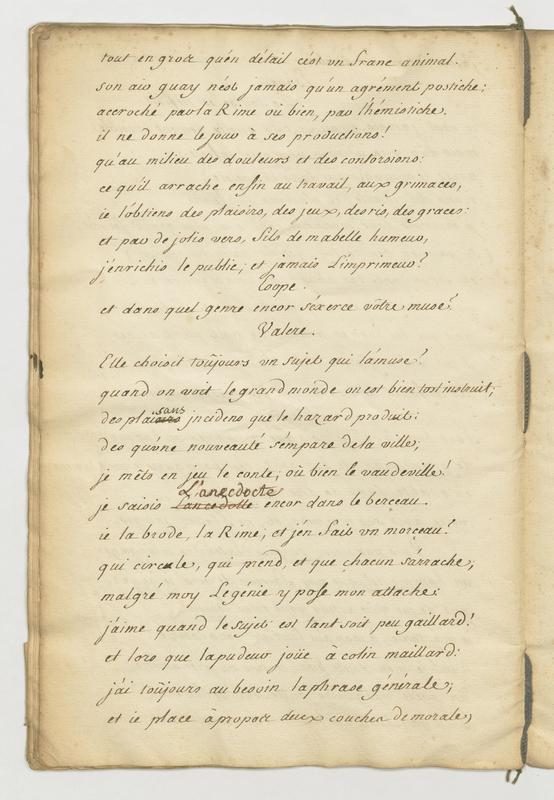 tout en gros qu'en détail c'est un franc animal.
son air guay n'est jamais qu'un agrément postiche;
accroché par la Rime où bien, par l'hémistiche.
il ne donne le jour à ses productions!
qu'au milieu des douleurs et des contorsions:
ce qu'il arrache enfin au travail, aux grimaces,
ie l'obtiens des plaisirs, des jeux, des ris, des graces:
et par de jolis vers, fils de ma belle humeur,
j'enrichis le public; et jamais L'imprimeur?
Coope.
et dans quel genre encor s'éxerce vôtre muse?
Valere.
Elle choisit toûjours un sujet qui l'amuse!
quand on voit le grand monde on est bien tost instruit;
sans
des plaisirs incidens que le hazard produit:
des qu'une nouveauté s'émpare de la ville;
je mêts en jeu le conte; où bien le vaudeville!
L'anecdocte
je saisis L'ancedotte encor dans le berceau.
ie la brode, la Rime; et j'én fait un morceau!
qui circule, qui prend, et que chacun s'árrache;
malgré moy Le génie y pose mon attache:
j'áime quand le sujet est tant soit peu gaillard!
et lors que la pudeur joüe à colin maillard:
j'ái toûjours au besoin la phrase générale;
et ie place à propos deux couches de morale;